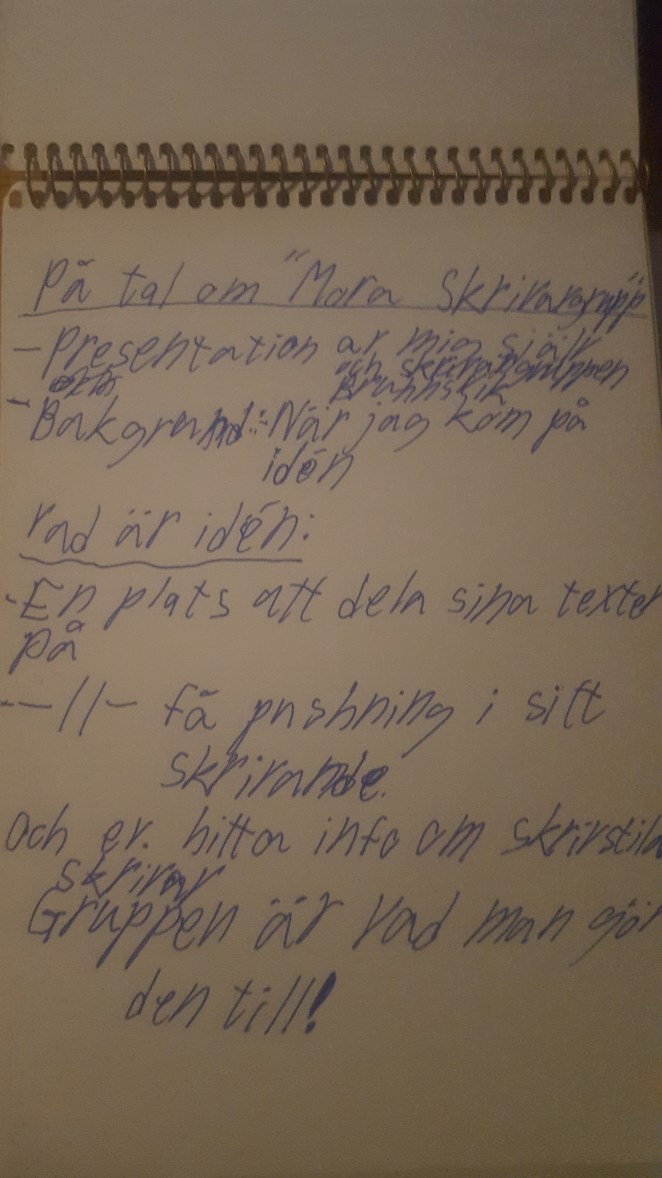 På tal om "Mora Skrivargrupp"
- Presentation av mig själv
och skrivargruppen
- Bakgrund: När jag kom på
idén
vad är idén:
- En plats att dela sina texter
på
- -//- få pushning i sitt
skrivande.
och ev. hitta info om skrivstila
Skrivar
Gruppen är vad man gör
den till!